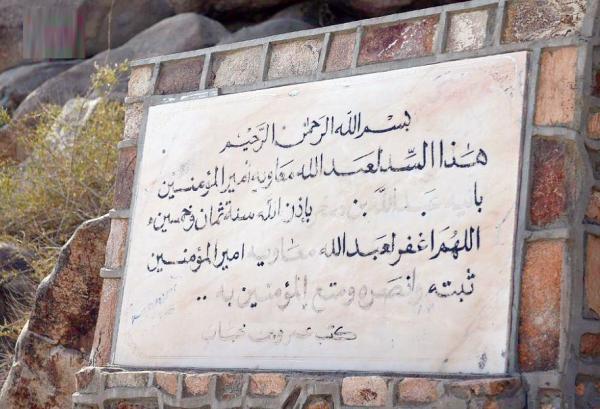 بسم الله الرحمن الرحيم
هذا السد لعبد الله معاويه امير المؤمنين
بنيه عبد الله بن بإذن الله سنة ثمان وخمسين
اللهم اغفر لعبد الله معاويه امير المؤمنين
ثبته وانصره ومتع المؤمنين به ..
كتب عمرو بن حباب